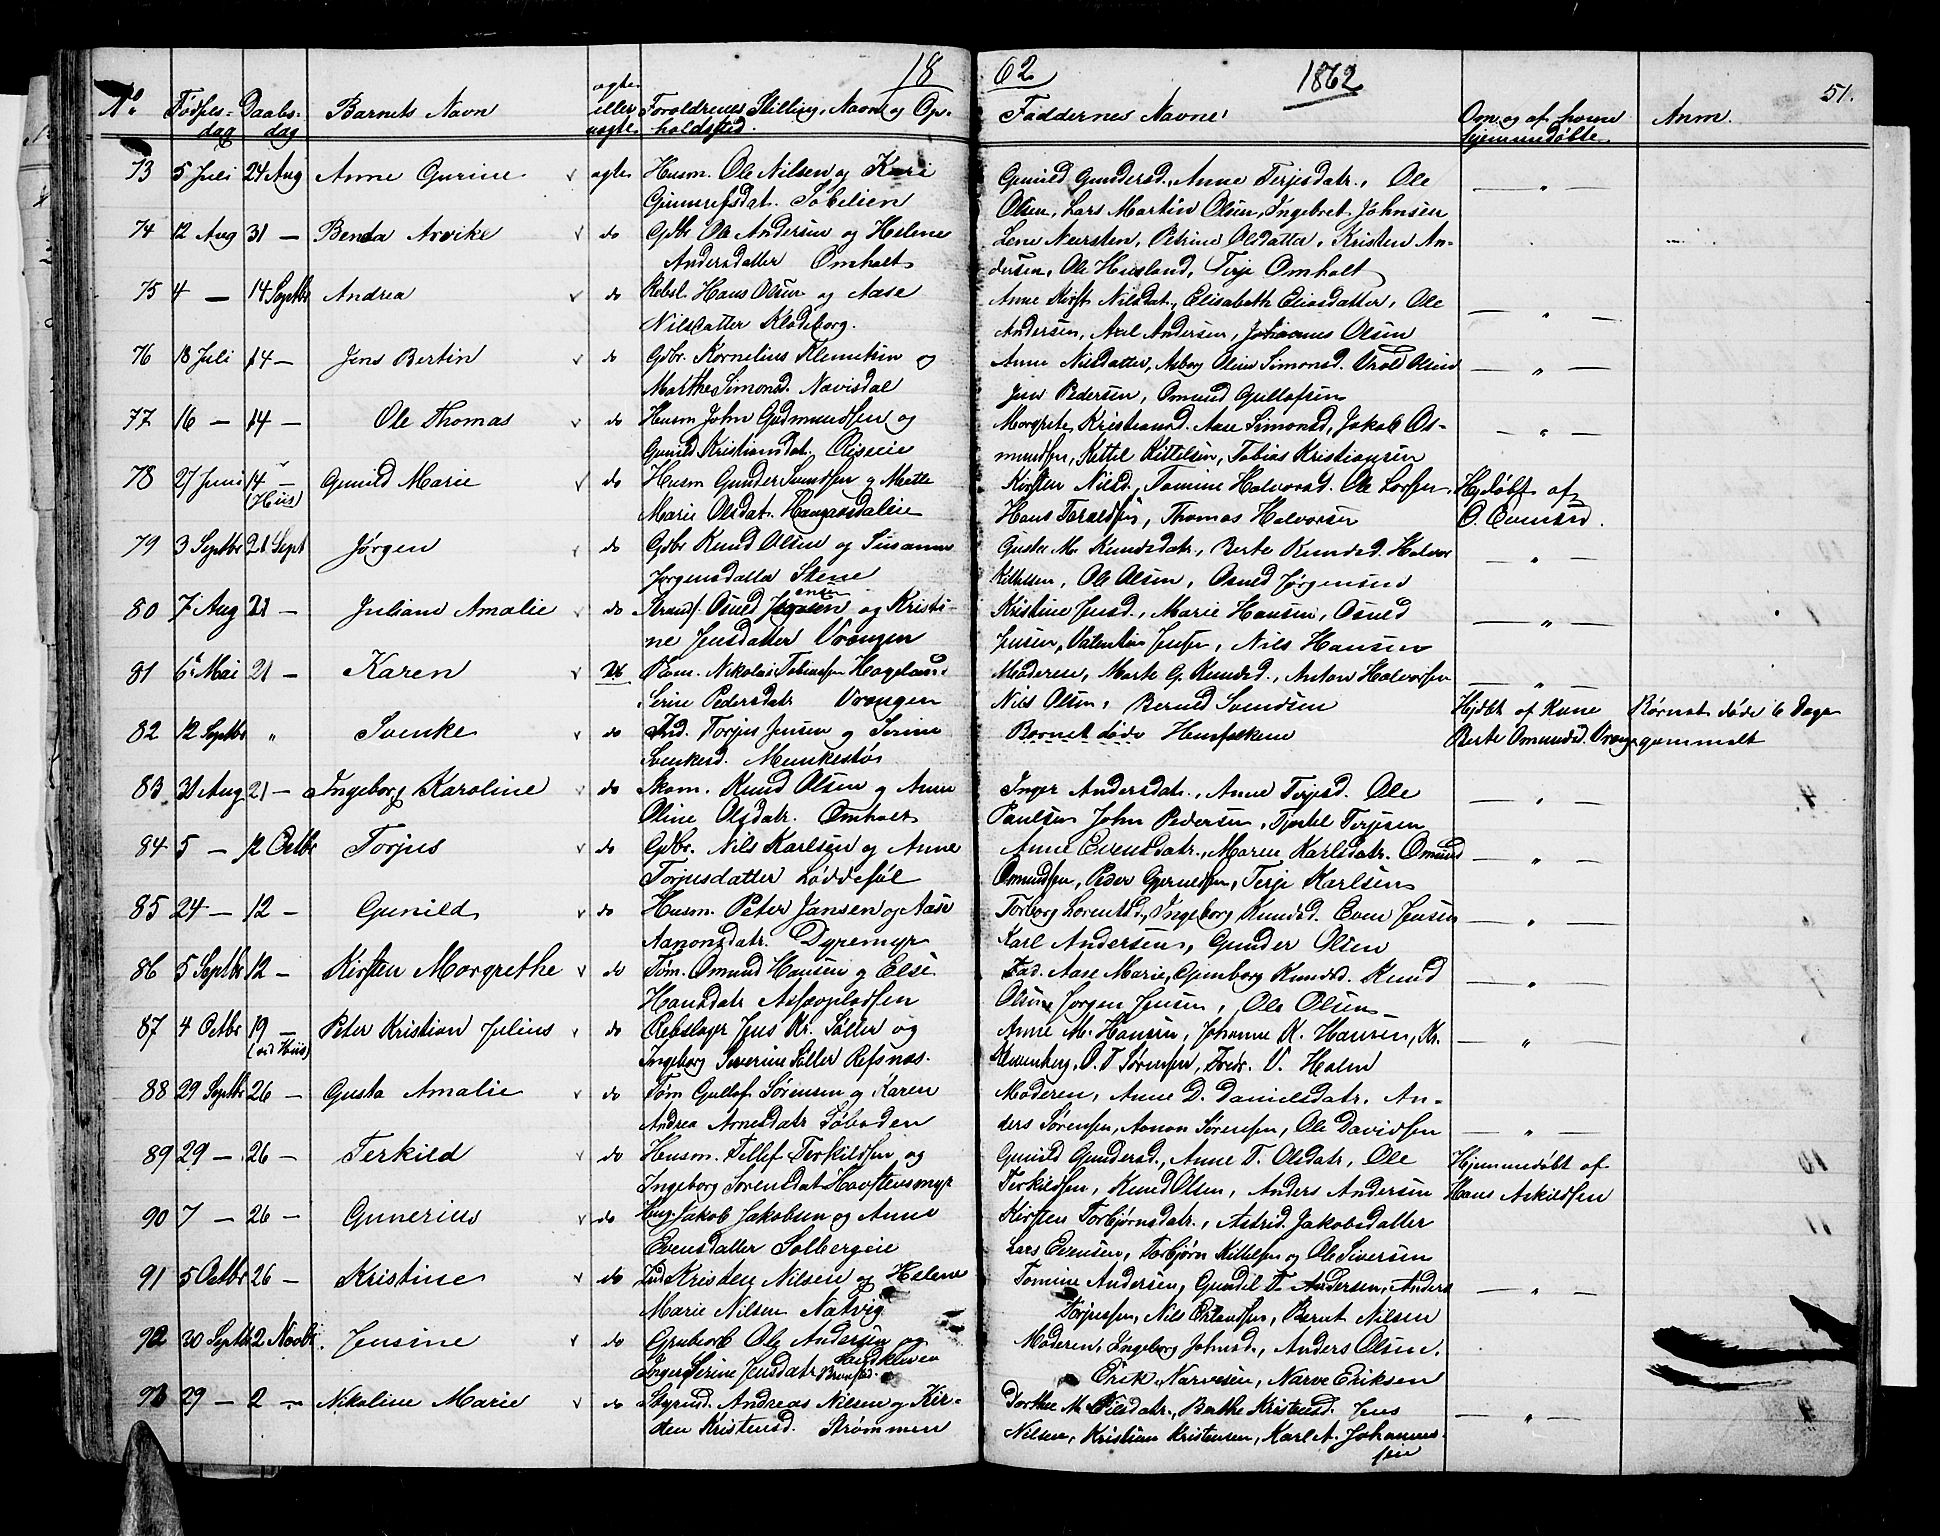 18 62 1862 51.
No Fødsels- Daabs- Barnets Navn ægte Forældrenes Stilling, Navn og Op- Faddernes Navne Om og af hvem Anm.
dag dag eller holdssted. hjemmedøbt
uægte
73 5 Juli 24 Aug Anne Gurine ægte Husm. Ole Nilsen og Kari Gunild Gundersd., Anne Terjesdatr., Ole — " —
Olsen, Lars Martin Olsen, Ingebret Johnsen
74 12 Aug 31 — Benda Arvike do Gdbr Ole Andersen og Helene Lene Neersten, Petrine Olsdatter, Kristen An-
Andersdatter Omholt dersen, Ole Huusland, Terje Omholt
75 4 — 14 Septbr Andrea do Rebsl. Hans Olsen og Aase Anne Kirst. Nilsdat., Elisabeth Eliasdatter, Ole — " —
Nilsdatter Klodeborg. Andersen, Axel Andersen, Johannes Olsen
76 18 Juli 14 — Jens Bertin do Gdbr. Kornelius Klemetsen og Anne Nilsdatter, Asborg Oline Simonsd. Olsen — " —
Marthe Simonsd. Navisdal Jens Pedersen, Omund Gullofsen
77 16 — 14 — Ole Thomas do Husm John Gudmundsen og Margrete Kristiansd. Aase Simonsd, Jakob Os- — " —
Gunild Kristiansdat. mundsen, Kittel Kittelsen, Tobias Kristiansen
78 27 Juni 14 — Gunild Marie do Husm Gunder Svendsen og Mette Kirsten Nilsd., Tomine Halvorsd. Ole Larsen, Hjdøbt af
(Hiis) Marie Olsdat. Haugaasdaleie Hans Taraldsen, Thomas Halvorsen O. Evensen.
79 3 Septbr 21 Sept Jørgen do Gdbr Knud Olsen og Susanne Guste M. Knudsdatr, Berte Knudsd. Halvor — " —
Jørgensdatter Stene Kittelsen, Ole Olsen, Osuld Jørgensen
80 7 Aug 21 — Juliane Amalie do Strands. Osuld Jensen og Kristi- Kristine Jensd., Marie Hansen, Osuld — " —
ne Jensdatter Vrangen Jensen, Valentin Jensen, Nils Hansen
81 6 Mai 21 — Karen Nikolai Tobiassen Hageland Moderen, Marte G. Knudsd., Anton Halvorsen — " —
Serine Pedersdatr Vrangen Nils Olsen, Bernt Svendsen
82 12 Septbr " Svenke do Ind. Torjus Jensen og Serine Barnet døde Husfolkene Hjdbt af Kone Barnet døde 6 Dage
Svenkesd. Munkestø Berte Omundsd. Vrangen gammelt
83 31 Aug 21 — Ingeborg Karoline do Skom. Knud Olsen og Anne Inger Andersdatr., Anne Terjesd. Ole — " —
Oline Olsdatr. Omholt Paulsen John Pedersen, Tjostel Terjesen
84 5 — 12 Octbr Torjus do Gdbr. Nils Karlsen og Anne Anne Evensdatr., Maren Karlsdatr. Omund — " —
Torjusdatter Løddesøl Omundsen, Peder Gjeruldsen, Terje Karlsen
85 24 — 12 — Gunild do Husm. Peter Jansen og Aase Torborg Lorentsd., Ingeborg Knudsd. Even Jensen — " —
Aanonsdatr. Dyremyr Karl Andersen, Gunder Olsen
86 5 Septbr 12 — Kirsten Margrethe do Tøm. Omund Hansen og Else Aase Marie, Gunborg Knudsd. Knud — " —
Hansdatr Olsen Jørgen Jensen, Ole Olsen
87 4 Octbr 19 — Peter Kristian Julius do Rebslager Jens Kr. Søller og Anne M. Hansen, Johanne K. Hansen, Kr. — " —
(ved Hiis) Ingeborg Severine Søller Refsnæs. O. T Sørensen, Fredr. V. Holm
88 29 Septbr 26 — Gusta Amalie do Tøm Gullof Sørensen og Karen Moderen, Anne D. Danielsdatr. An-
Andrea Arnesdatr Søboden ders Sørensen, Aanon Sørensen, Ole Davidsen — " —
89 29 — 26 — Terkild do Husm. Tellef Terkildsen og Gunild Gundersd., Anne T. Olsdatr, Ole Hjemmedøbt af
Ingeborg Sorensdat Havstensmyr Terkildsen, Knud Olsen, Anders Andersen Hans Askildsen
90 7 — 26 — Gunerius do Jakob Jakobsen og Anne Kirsten Torbjørnsdatr., Astrid Jakobsdatter
Evensdatter Solbergeie Lars Evensen, Torbjørn Kittelsen og Ole Siversen
91 5 Octbr 26 — Kristine do Ind Kristen Nilsen og Helene Tomine Andersen, Gundil T. Andersen, Anders — " —
Marie Nilsen Natvig Torjussen, Nils Erlandsen, Bernt Nilsen
92 30 Septbr 2 Novbr. Jensine do Grubearb Ole Andersen og Moderen, Ingeborg Johnsd., Anders Olsen,
Inger Serine Jensdatr Sandkleven Erik Narvesen, Narve Eriksen
93 29 — 2 — Nikoline Marie do Styrmd. Andreas Nilsen og Kir- Dorthe M. Nilsdatr., Berthe Kristensd. Jens — " —
sten Kristensd. Strømmen Nilsen, Kristian Kristensen, Karl A. Johannes-
sen